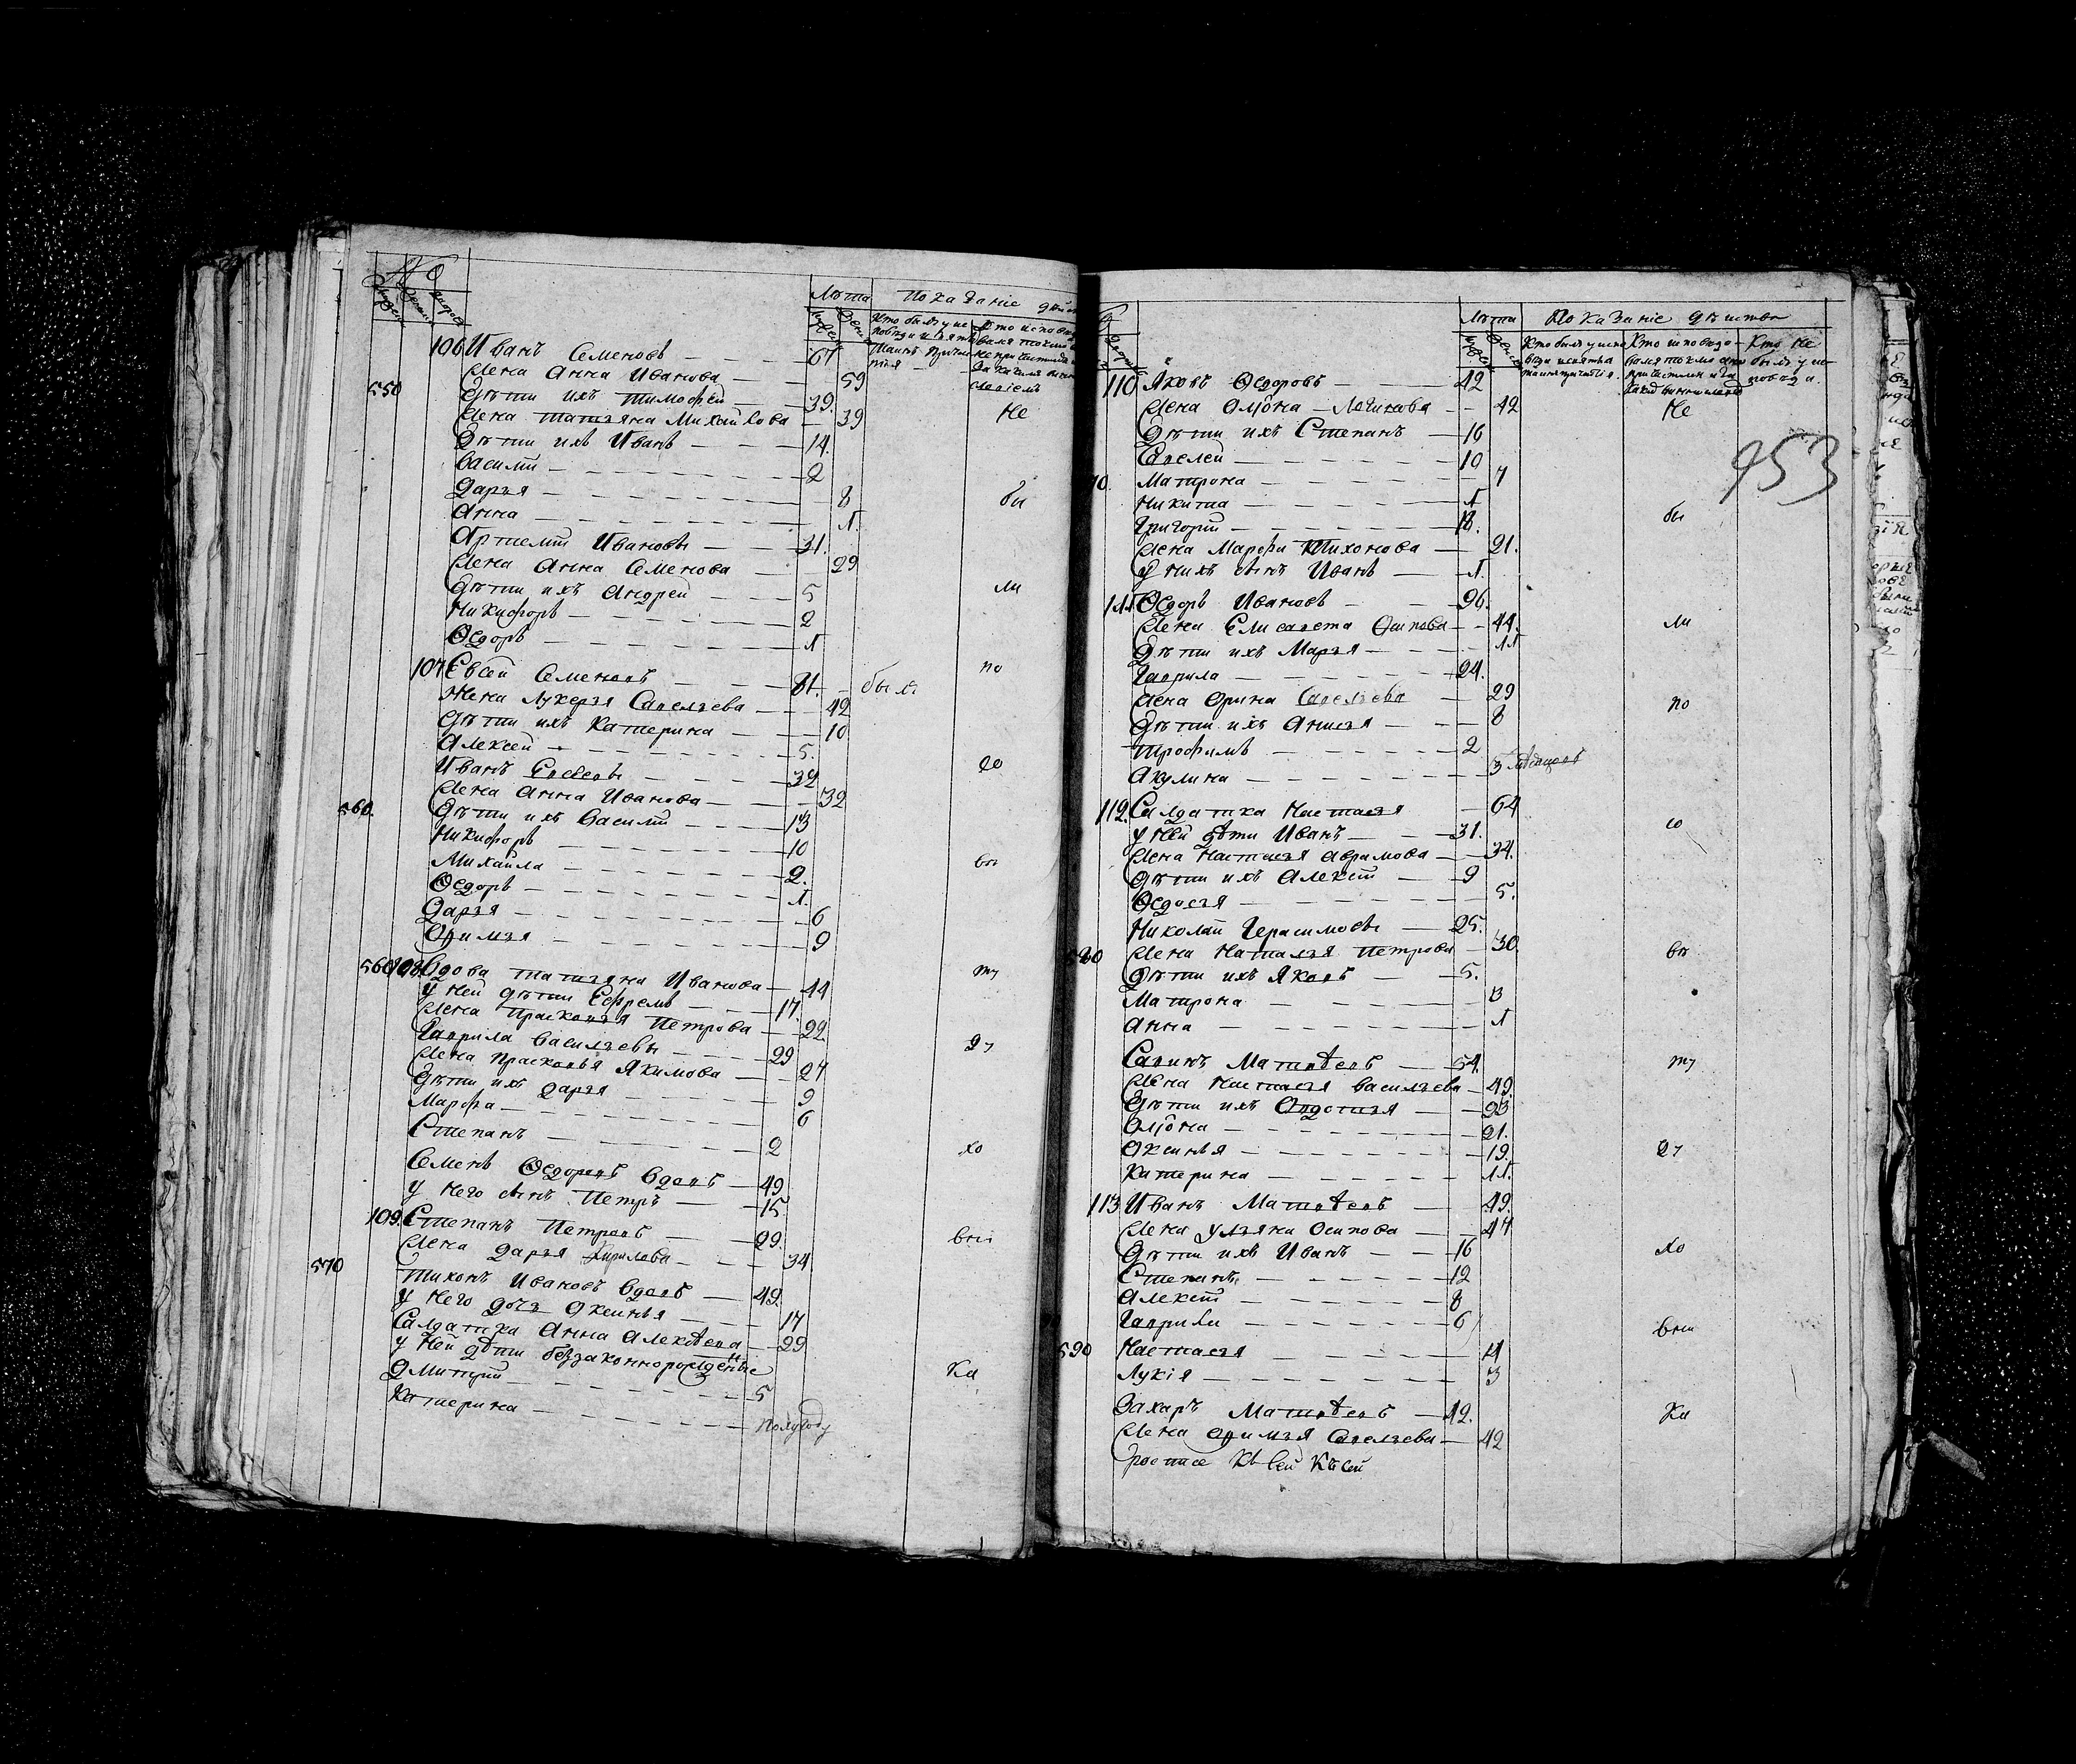 №
Людей
Дворов
Лѣта
Показанїе дѣй
106 Иванъ Семеновъ 61
Жена Анна Иванова 59
550 Дѣти ихъ Тимофей 39.
Жена Татьяна Михайлова 39 не
Дѣти ихъ Иванъ 14.
Василий 2
Дарья 8 бы
Анна 1.
Артемий Ивановъ 31.
Жена Анна Семенова 29
Дѣти ихъ Андрей 5 ли
Никифоръ 2
Ѳедоръ 1
107 Евсей Семеновъ 81. были по
Жена Лукерья Савельева 42
Дѣти ихъ Катерина 10
Алексей 5.
Иванъ Евсевъ 32 со
Жена Анна Иванова 32
560. Дѣти ихъ Василий 13
Никифоръ 10
Михайла 2. въ
Ѳедоръ 1.
Дарья 6
Офимья 9
560 108 Вдова Татьяна Иванова 44 ту
у ней дѣти Ефремъ 17.
Жена Прасковья Петрова 22.
Гаврила Васильевъ 29 ду
Жена Прасковья Якимова 27
Дѣти ихъ Дарья 9
Марфа 6
Степанъ 2 хо
Семенъ Ѳедоровъ вдовъ 49
у него сынъ Петръ 15
109. Степанъ Петровъ 29. вни
Жена Дарья Кирилова 34
570 Тихонъ Ивановъ вдовъ 49.
у него дочь Оксинья 17
Салдатка Анна Алексѣева 29
у ней дѣти беззаконнорожденные
Дмитрий 5 ка
Катерина полугоду
Лѣта
Показанїе дѣиства
953
110 Яковъ Ѳедоровъ 42
Жена Олїона Логинова 42 не
Дѣти ихъ Степанъ 16
Савелей 10
Матрона 7
Никита 1
Григорий 18. бы
Жена Марфа Тихонова 21.
У нихъ сынъ Иванъ 1.
111 Ѳедоръ Ивановъ 96.
Жена Елисавета Осипова 44. ли
Дѣти ихъ Марья 11
Гаврила 24.
Жена Орина Савельева 29 по
Дѣти ихъ Анисья 8
Трофимъ 2
Акулина 3 мѣсяцовъ
112. Салдатка Настасья 64
у ней дѣти Иванъ 31. со
Жена Настасья Аврамова 34.
Дѣти ихъ Алексей 9
Ѳедосья 5.
Николай Герасимовъ 25.
Жена Наталья Петрова 30. въ
Дѣти ихъ Яковъ 5.
Матрона 3
Анна 1
Савинъ Матвѣевъ 54. ту
Жена Настасья Васильева 49.
Дѣти ихъ Овдотья 23
Олїона 21.
Оксинья 19. ду
Катерина 11.
113 Иванъ Матвѣевъ 49.
Жена Ульяна Осипова 47
Дѣти ихъ Иванъ 16 хо
Степанъ 12
Алексей 8
Гаврила 6 вни
590 Настасья 4
Лукїя 3
Захаръ Матвѣевъ 42. ка
Жена Офимья Савельева 42